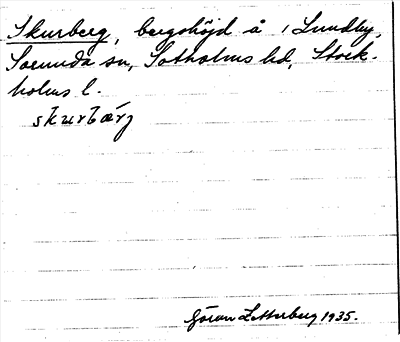 Skurberg, bergshöjd å 1 Lundby,
Sorunda sn, Sotholms hd, Stock-
holms l.
skurbærg
Göran Zetterberg 1935.